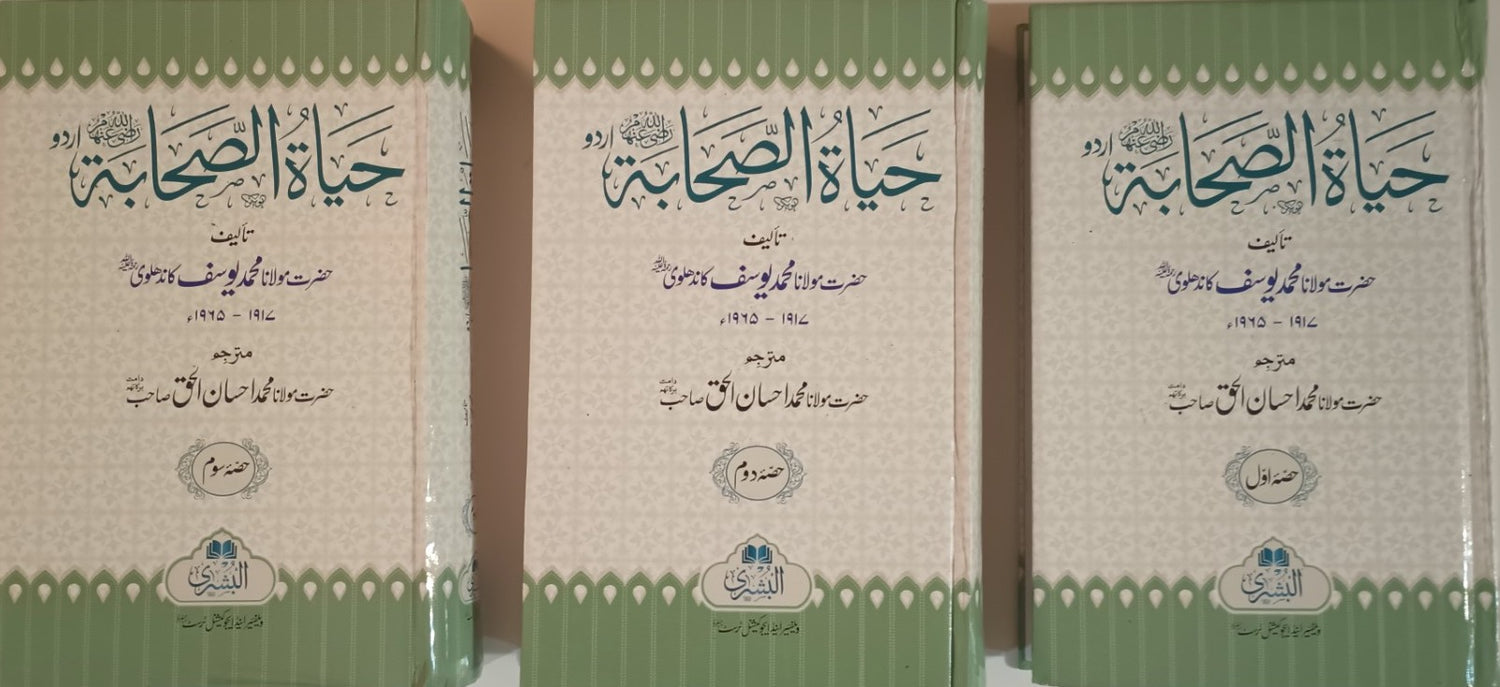 حَیَاۃُ الصَّحَابَۃ رضی اللہ عنہم اردو
تالیف
حضرت مولانا محمد یوسف کاندھلوی رحمۃ اللہ علیہ
۱۹۱۷ - ۱۹۶۵ء
مترجم
حضرت مولانا محمد احسان الحق صاحب دامت برکاتہم
حصّہ اوّل
البُشریٰ
ویلفیئر اینڈ ایجوکیشنل ٹرسٹ
حَیَاۃُ الصَّحَابَۃ رضی اللہ عنہم اردو
تالیف
حضرت مولانا محمد یوسف کاندھلوی رحمۃ اللہ علیہ
۱۹۱۷ - ۱۹۶۵ء
مترجم
حضرت مولانا محمد احسان الحق صاحب دامت برکاتہم
حصّہ دوم
البُشریٰ
ویلفیئر اینڈ ایجوکیشنل ٹرسٹ
حَیَاۃُ الصَّحَابَۃ رضی اللہ عنہم اردو
تالیف
حضرت مولانا محمد یوسف کاندھلوی رحمۃ اللہ علیہ
۱۹۱۷ - ۱۹۶۵ء
مترجم
حضرت مولانا محمد احسان الحق صاحب دامت برکاتہم
حصّہ سوم
البُشریٰ
ویلفیئر اینڈ ایجوکیشنل ٹرسٹ